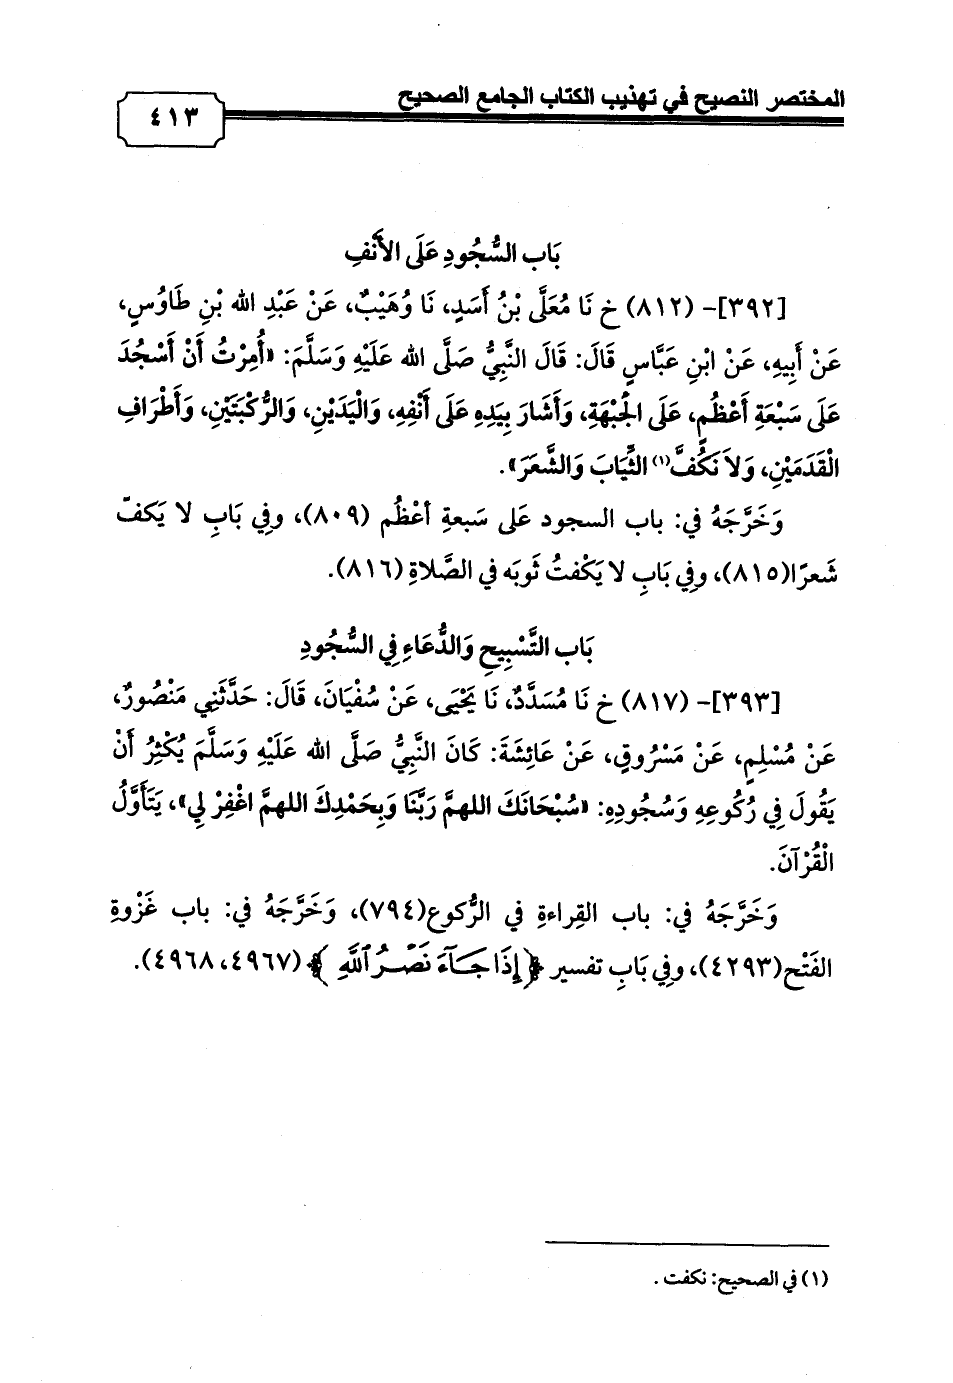 المختصر النصيح في تهذيب الكتاب الجامع الصحيح
٤١٣
بَاب السُّجُودِ عَلَى الأَنْفِ
[٣٩٢]- (٨١٢) خ نَا مُعَلَّى بْنُ أَسَدٍ، نَا وُهَيْبٌ، عَنْ عَبْدِ الله بْنِ طَاوُسٍ،
عَنْ أَبِيهِ، عَنْ ابْنِ عَبَّاسٍ قَالَ: قَالَ النَّبِيُّ صَلَّى الله عَلَيْهِ وَسَلَّمَ: «أُمِرْتُ أَنْ أَسْجُدَ
عَلَى سَبْعَةِ أَعْظُمٍ، عَلَى الْجَبْهَةِ، وَأَشَارَ بِيَدِهِ عَلَى أَنْفِهِ، وَالْيَدَيْنِ، وَالرُّكْبَتَيْنِ، وَأَطْرَافِ
الْقَدَمَيْنِ، وَلاَ نَكُفَّ(١) الثِّيَابَ وَالشَّعَرَ».
وَخَرَّجَهُ في: باب السجود عَلى سَبعةِ أعْظُم (٨٠٩)، وفِي بَابِ لا يَكفّ
شَعرًا(٨١٥)، وفِي بَابِ لا يَكْفتُ ثَوبَه في الصَّلاةِ (٨١٦).
بَاب التَّسْبِيحِ وَالدُّعَاءِ فِي السُّجُودِ
[٣٩٣]- (٨١٧) خ نَا مُسَدَّدٌ، نَا يَحْيَى، عَنْ سُفْيَانَ، قَالَ: حَدَّثَنِي مَنْصُورٌ،
عَنْ مُسْلِمٍ، عَنْ مَسْرُوقٍ، عَنْ عَائِشَةَ: كَانَ النَّبِيُّ صَلَّى الله عَلَيْهِ وَسَلَّمَ يُكْثِرُ أَنْ
يَقُولَ فِي رُكُوعِهِ وَسُجُودِهِ: «سُبْحَانَكَ اللهمَّ رَبَّنَا وَبِحَمْدِكَ اللهمَّ اغْفِرْ لِي»، يَتَأَوَّلُ
الْقُرْآنَ.
وَخَرَّجَهُ في: باب القِراءةِ في الرُّكوع(٧٩٤)، وَخَرَّجَهُ في: باب غَزْوةِ
الفَتْح(٤٢٩٣)، وفِي بَابِ تفسير ﴿إِذَا جَآءَ نَصْرُ ٱللَّهِ﴾ (٤٩٦٧، ٤٩٦٨).
(١) في الصحيح: نكفت .